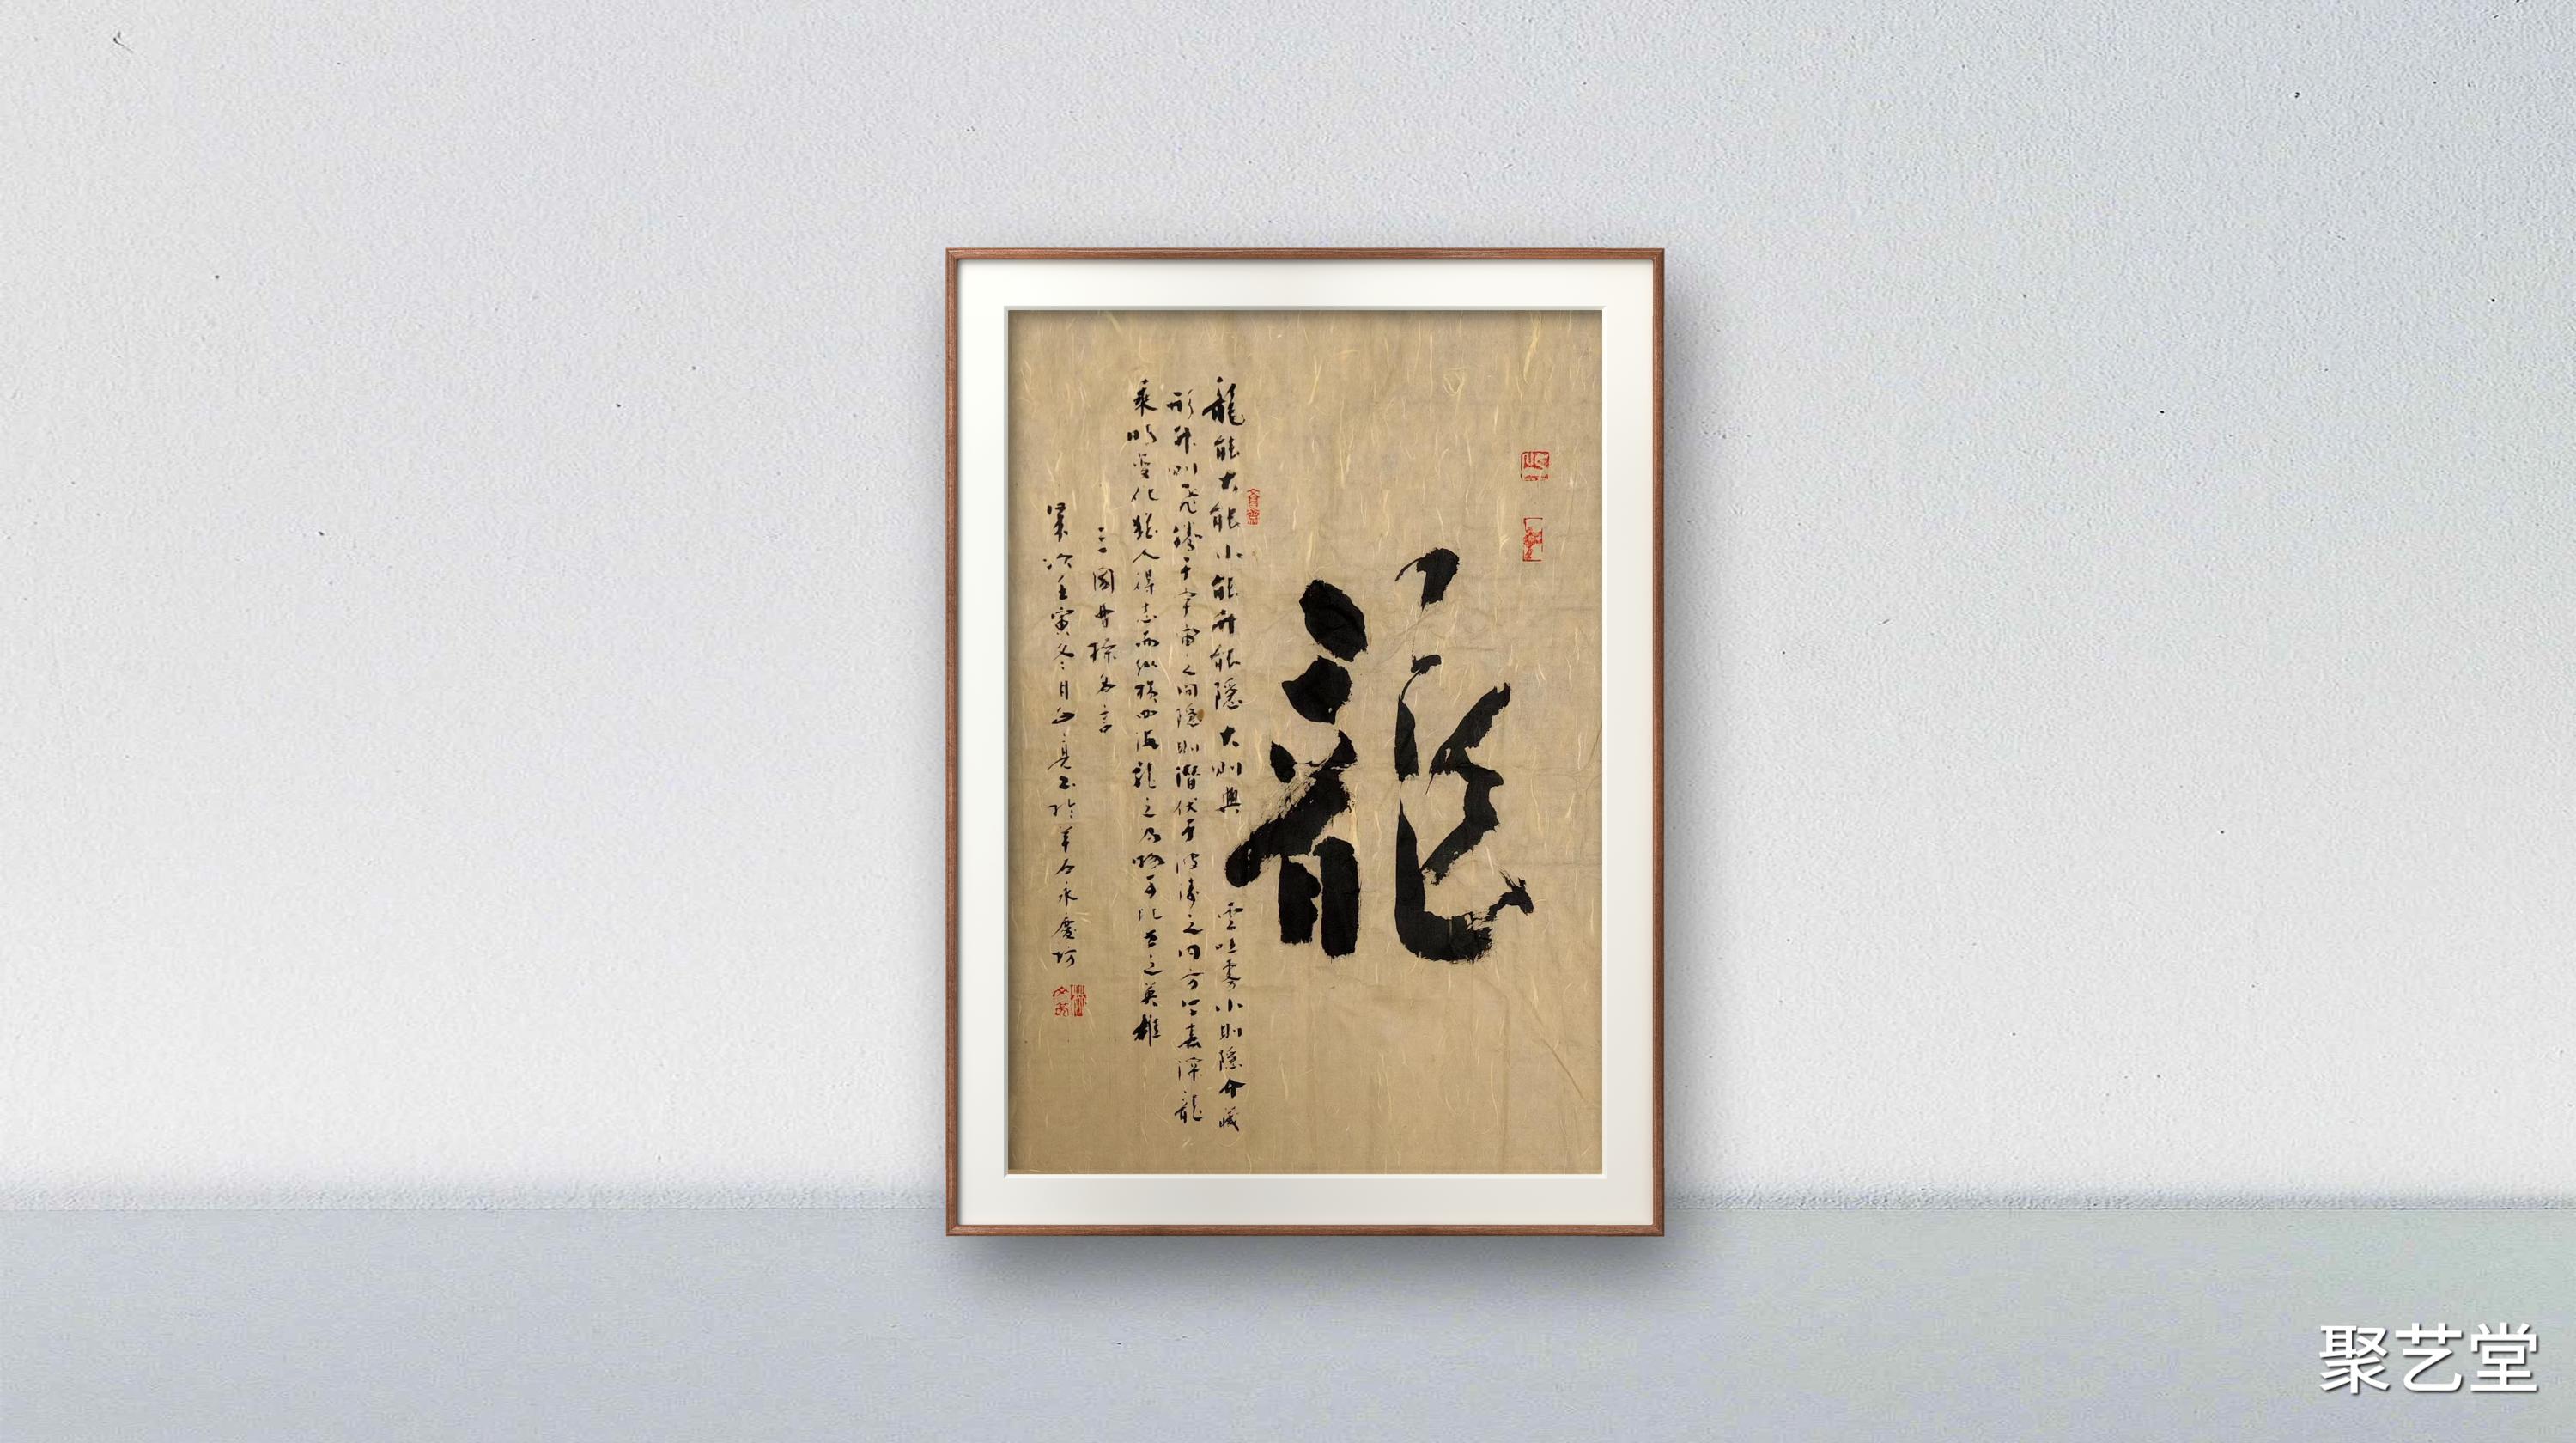 龍
龍能大能小能升能隱大則興雲吐霧小則隱介藏
形升則飛騰于宇宙之間隱則潛伏于波濤之內方今春深龍
乘時變化猶人得志而縱橫四海龍之為物可比世之英雄
三國曹操名言
歲次壬寅冬月 書於羊石永慶坊
聚艺堂